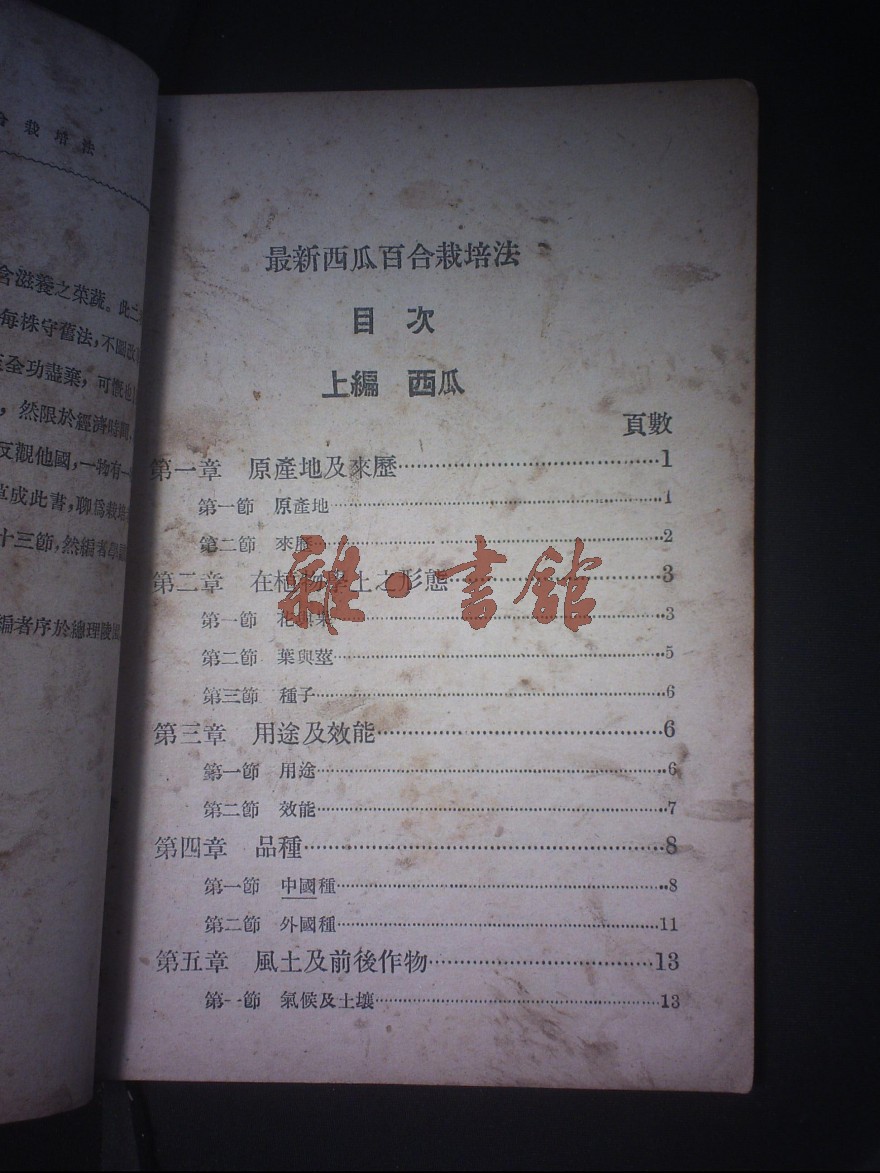 合栽培法
含滋養之菜蔬。此二
每株守舊法，不圖改
全功盡棄，可慨也
，然限於經濟時間，
反觀他國，一物有一
草成此書，聊爲栽培
十三節，然編者學識
編者序於總理陵園
最新西瓜百合栽培法
目次
上編 西瓜
頁數
第一章 原產地及來歷…1
第一節 原產地…1
第二節 來歷…2
第二章 在植物學上之形態…3
第一節 花與果…3
第二節 葉與莖…5
第三節 種子…6
第三章 用途及效能…6
第一節 用途…6
第二節 效能…7
第四章 品種…8
第一節 中國種…8
第二節 外國種…11
第五章 風土及前後作物…13
第一節 氣候及土壤…13
雜·書館